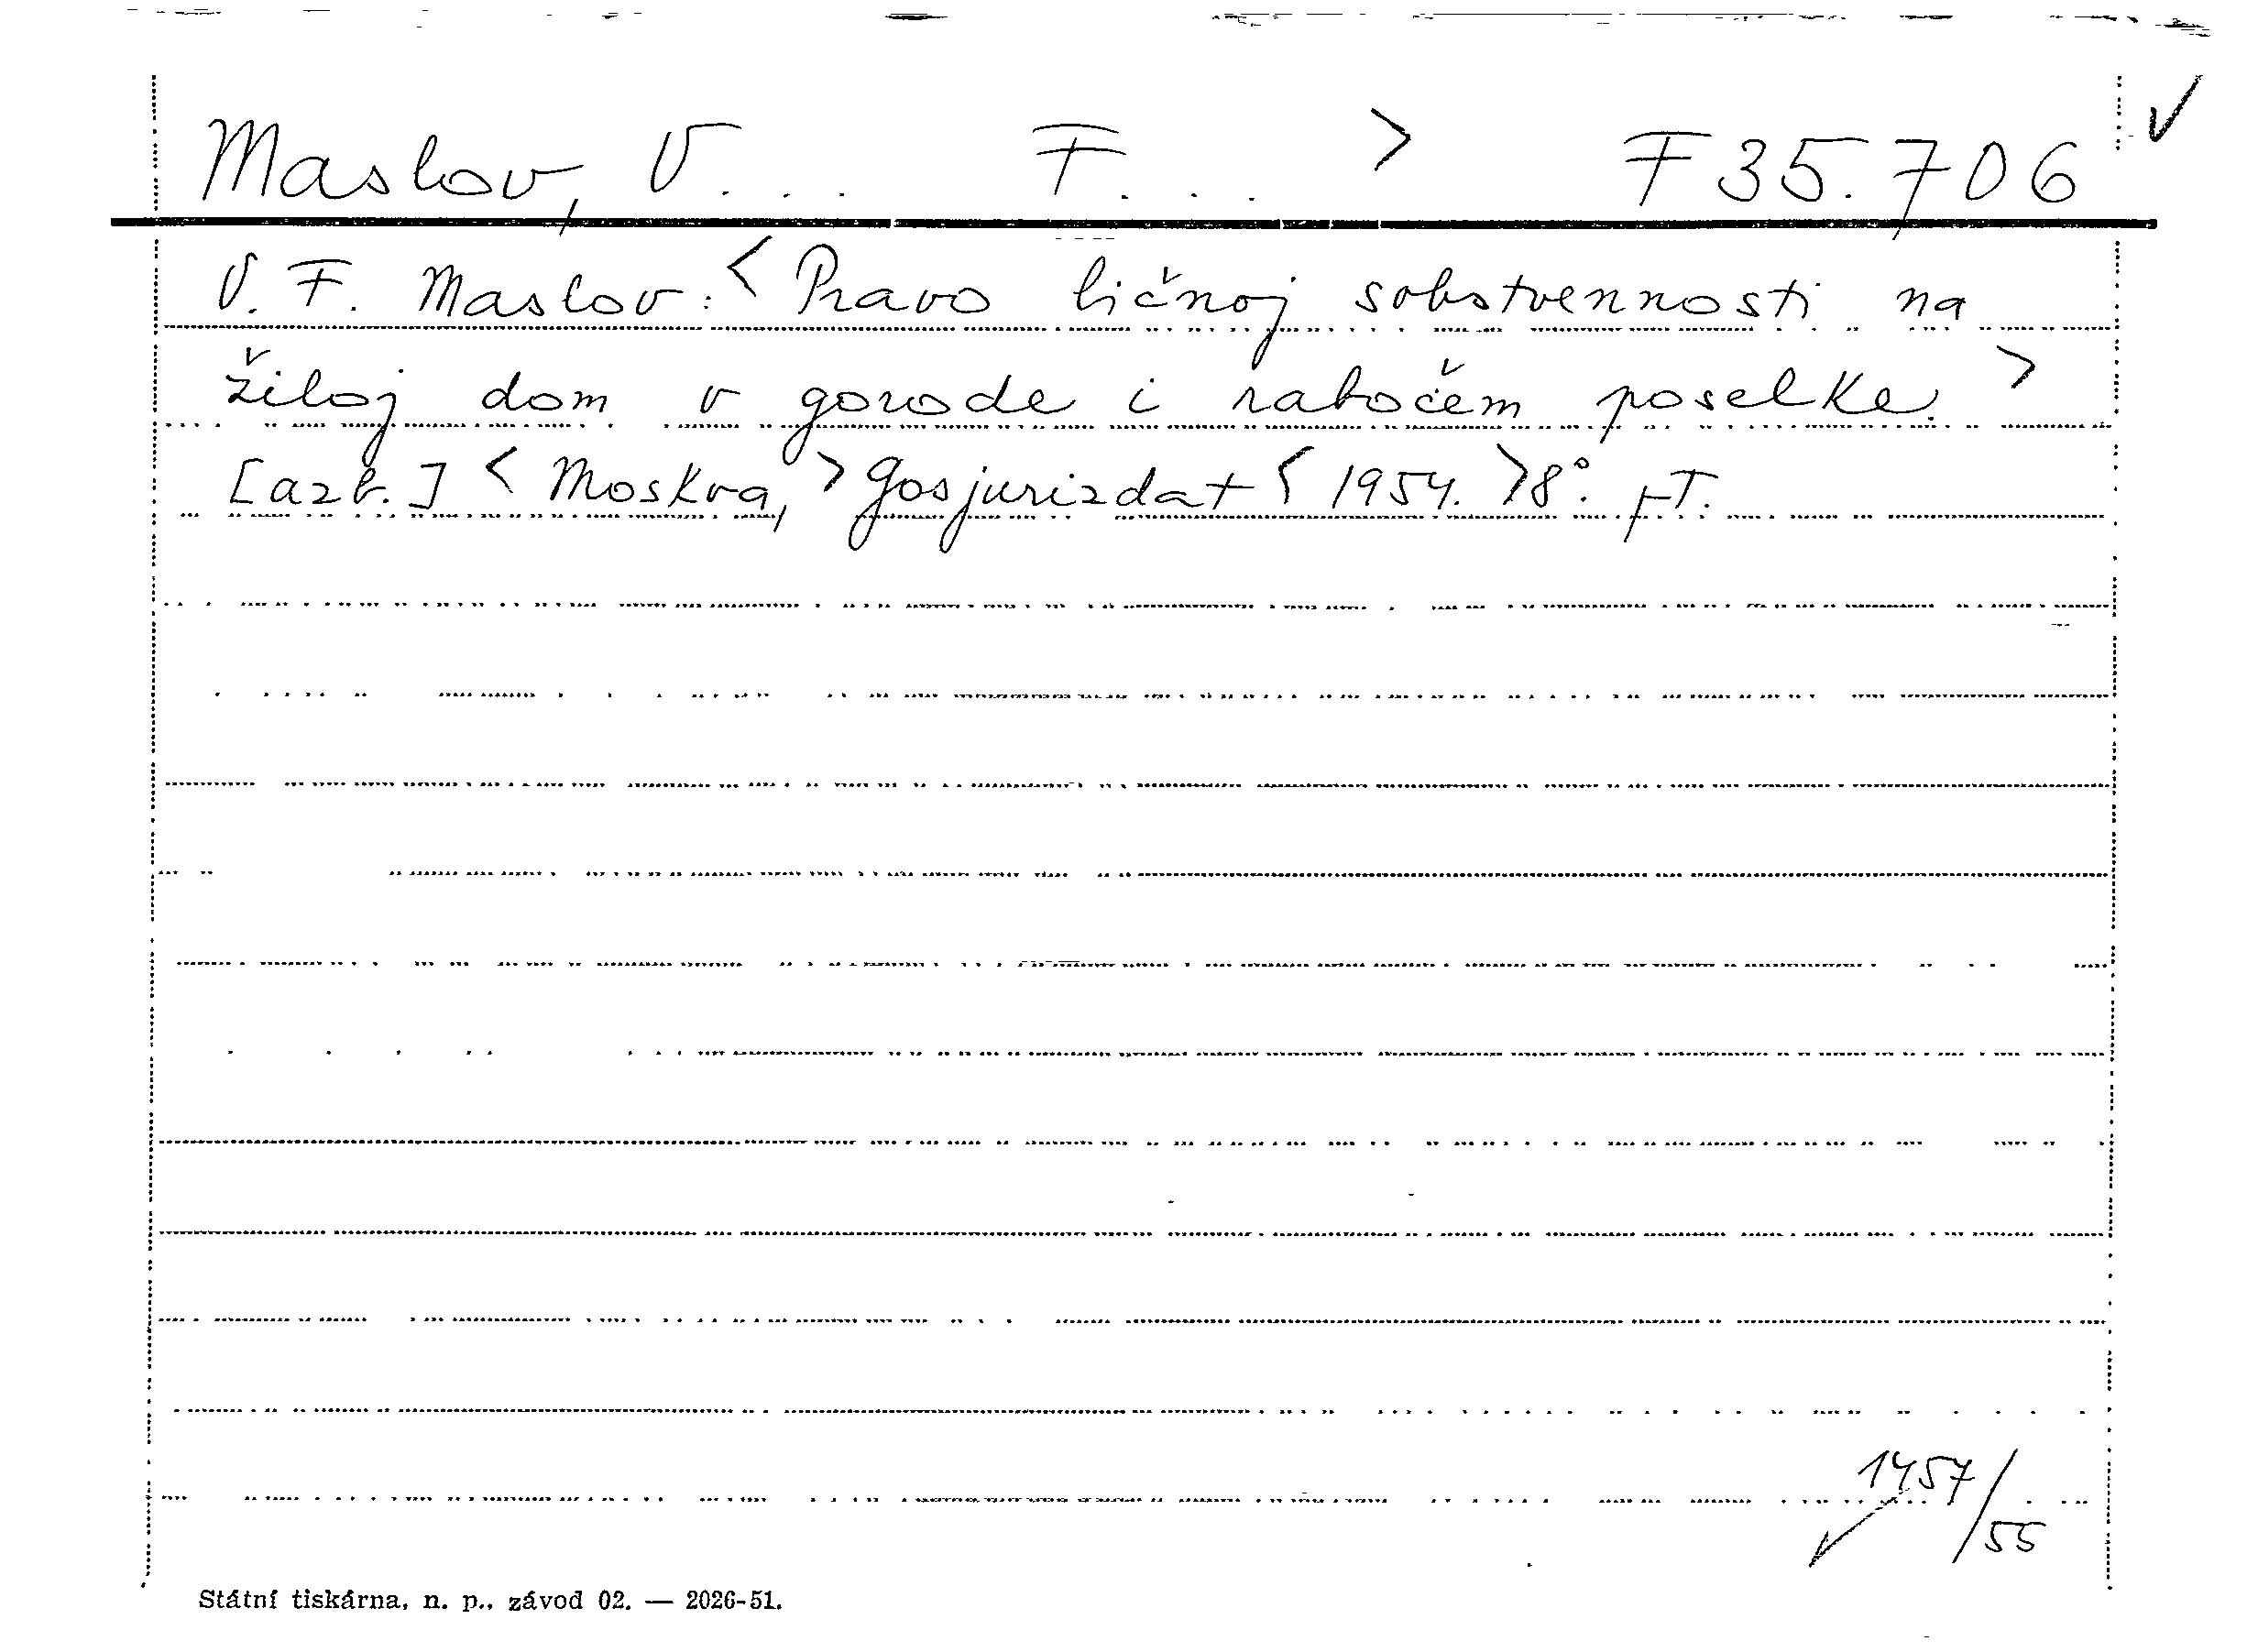 Maslov, V. . . F. . . > F 35.706 ✓
V. F. Maslov: < Pravo ličnoj sobstvennosti na
žiloj dom v gorode i rabočem poselke. >
[azb.] < Moskva, > Gosjurizdat < 1954. > 8°. pT.
1457/55
Státní tiskárna, n. p., závod 02. — 2026-51.